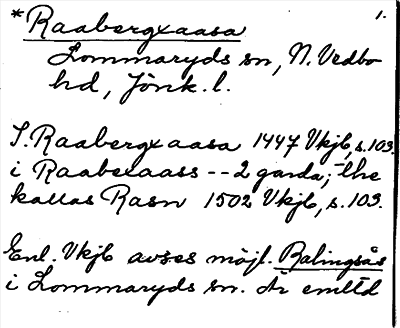 *Raabergxaasa 1.
Lommaryds sn, N. Vedbo
hd, Jönk. l.
I. Raabergxaasa 1447 Vkjb, s. 103.
i Raabexaass -- 2 garda; the
kallas Rasn 1502 Vkjb, s. 103.
Enl. Vkjb avses möjl. Ralingsås
i Lommaryds sn. Är